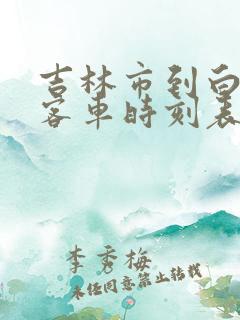 吉林市到白
客车时刻表
李秀梅
未经同意禁止转载